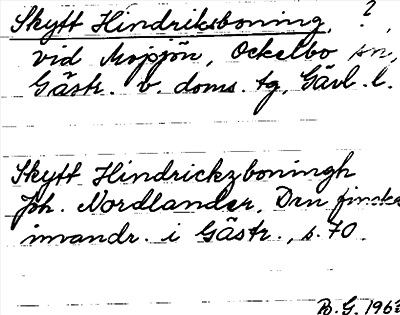 Skytt Hindriksboning, ?
vid Mopjön, Ockelbo sn,
Gästr. v. doms. tg, Gävl. l.
Skytt Hindrickzboningh
Joh. Nordlander, Den finska
invandr. i Gästr., s. 70.
B. G. 1963